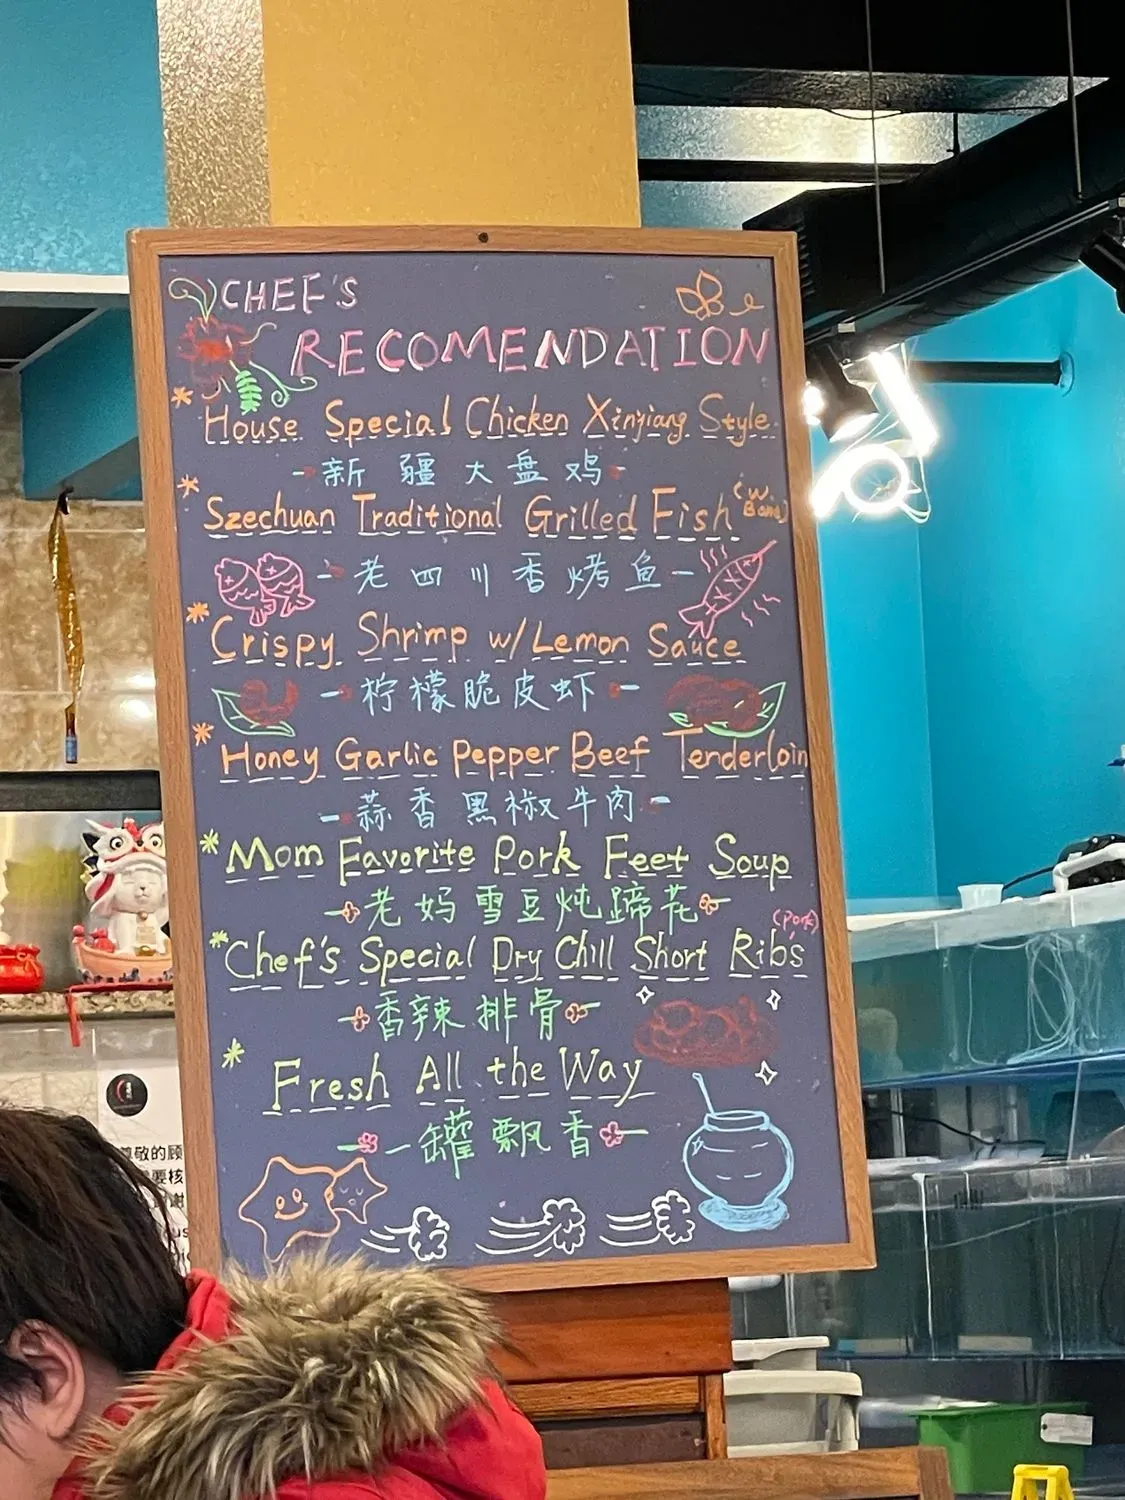 CHEF'S
RECOMENDATION
* House Special Chicken Xinjiang Style
- 新疆大盘鸡 -
* Szechuan Traditional Grilled Fish (w. Bone)
- 老四川香烤鱼 -
* Crispy Shrimp w/ Lemon Sauce
- 柠檬脆皮虾 -
* Honey Garlic Pepper Beef Tenderloin
- 蒜香黑椒牛肉 -
* Mom Favorite Pork Feet Soup
老妈雪豆炖蹄花
(Pork)
* Chef's Special Dry Chill Short Ribs
香辣排骨
* Fresh All the Way
一罐飘香
尊敬的顾
要核
谢